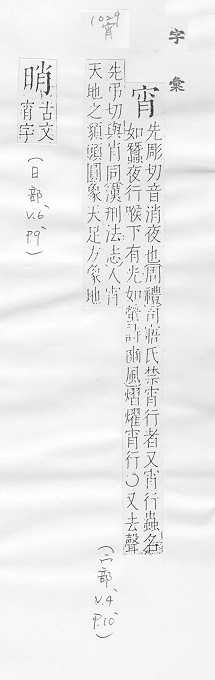 字彙
1029
宵
宵
先彫切音消夜也周禮司寤氏禁宵行者又宵行蟲名
如蠶夜行喉下有光如螢詩豳風熠燿宵行〇又去聲
先弔切與肖同漢刑法志人宵
天地之貌頭圓象天足方象地
(宀部, V.4, P.10)
㫾
古文
宵字
(日部, V.6, P.9)